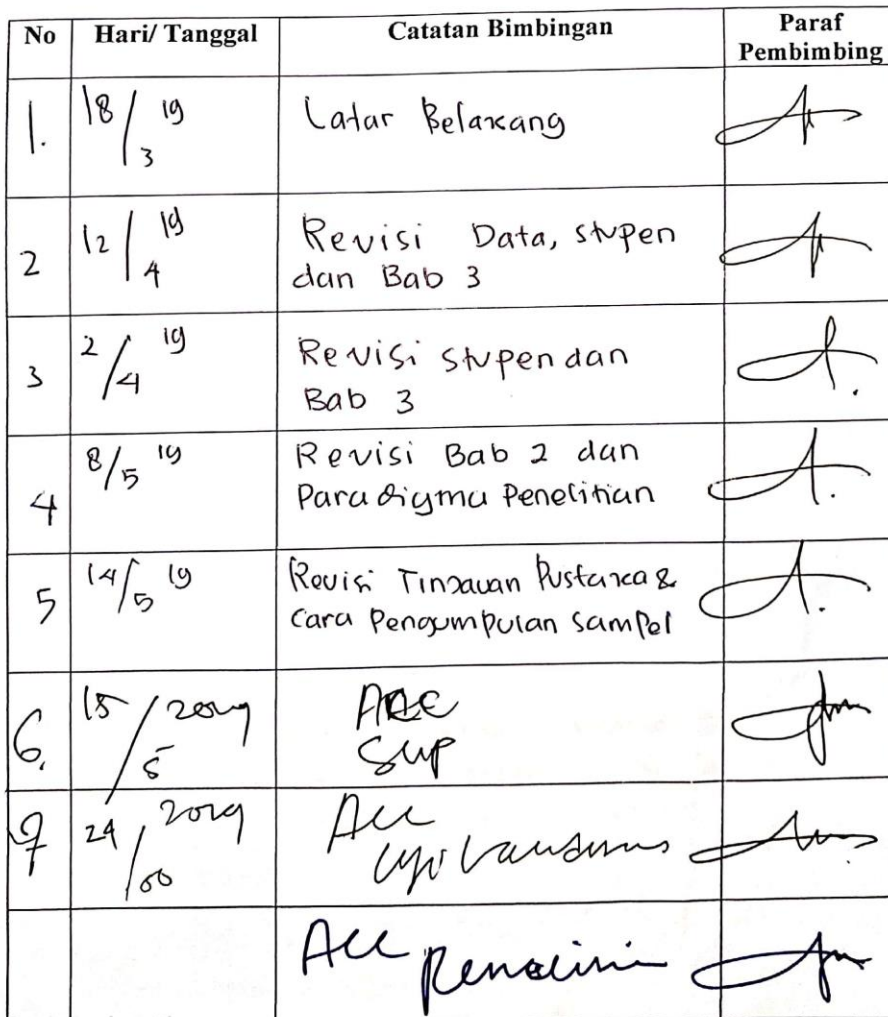 No Hari/ Tanggal Catatan Bimbingan Paraf
Pembimbing
1. 18/3 19 Latar Belakang
2 12/4 19 Revisi Data, stupen
dan Bab 3
3 2/4 19 Revisi stupen dan
Bab 3
4 8/5 19 Revisi Bab 2 dan
Paradigma Penelitian
5 14/5 19 Revisi Tinjauan Pustaka &
Cara Pengumpulan Sampel
6. 15/5 2019 ACC
SUP
7 24 2019 Acc
Uji
Acc